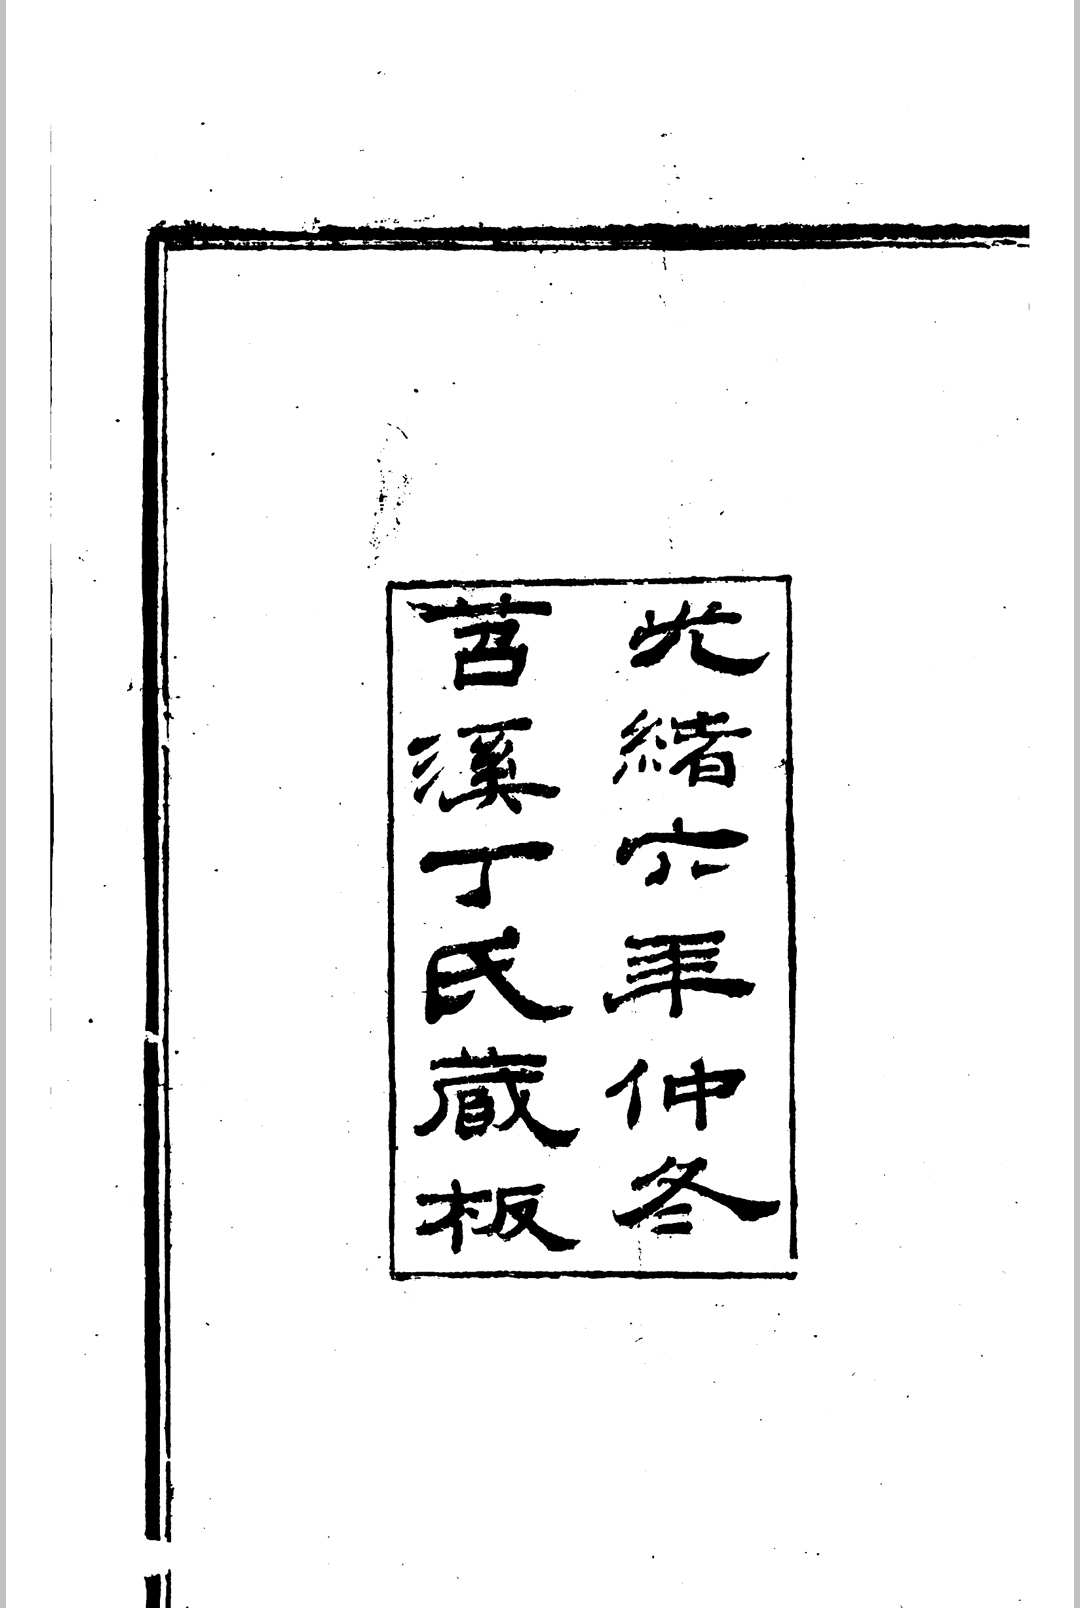 光緒六年仲冬
苕溪丁氏藏板